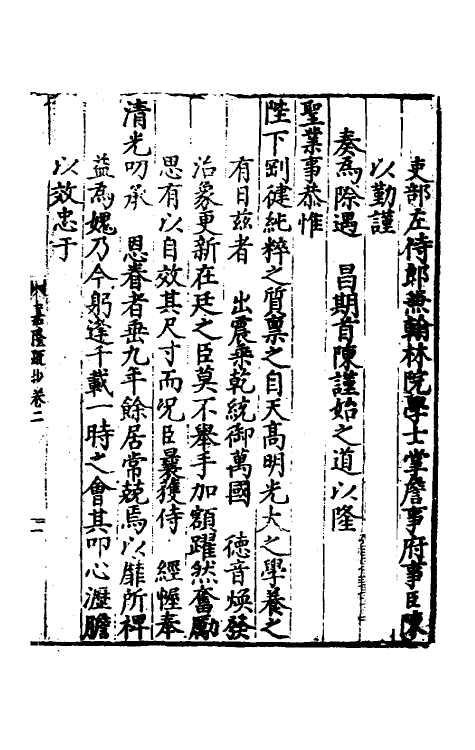 吏部左侍郎兼翰林院學士掌詹事府事臣陳
以勤謹
奏爲際遇　昌期首陳謹始之道以隆
聖業事恭惟
陛下剛健純粹之質稟之自天高明光大之學養之
有日茲者　出震乘乾統御萬國　德音煥發
治象更新在廷之臣莫不舉手加額躍然奮勵
思有以自效其尺寸而况臣曩獲侍　經幄奉
清光叨承　恩眷者垂九年餘居常兢焉以靡所裨
益爲媿乃今躬逢千載一時之會其叩心瀝膽
以效忠于
嘉隆疏抄卷二